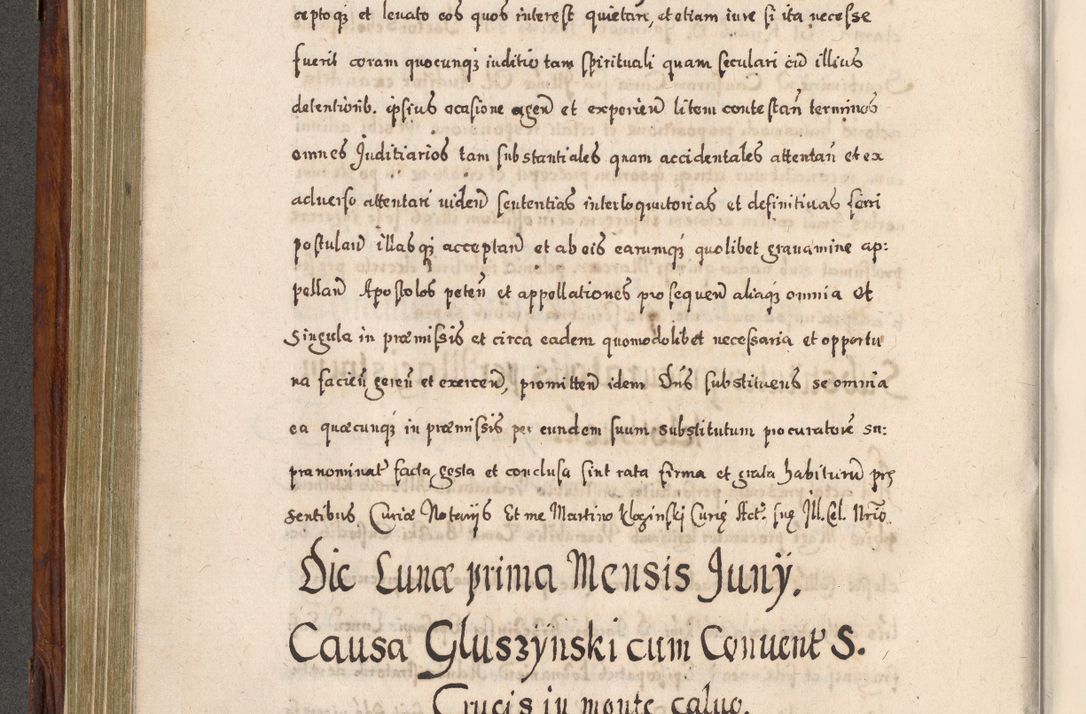 ceptoqȝ et leuato eos quos interest quietan̄, et etiam iure si ita necesse
fuerit coram quocunqȝ iuditio tam spirituali quam seculari cū illius
detentionib. ipsius ocasione agen̄ et experien̄ litem contestan̄ terminos
omnes Juditiarios tam substantiales quam accidentales attentan̄ et ex
aduerso attentari uiden̄ sententias interloquutorias et definitiuas ferri
postulan̄ illasqȝ acceptan̄ et ab eis earumqȝ quolibet grauamine ap:
pellan̄ Apostolos peten̄ et appellationes prosequen̄ aliaqȝ omnia et
singula in præmissis et circa eadem quomodolibet necessaria et opportu
na facien̄ geren̄ et exercen̄, promitten̄ idem Dn̄s substituens se omnia
ea quæcunqȝ in præmissis per eundem suum substitutum procuratorē su:
pranominat̄ facta gesta et conclusa sint rata firma et grata habiturū præ
sentibus Curiæ Notarijs Et me Martino Klozinski Curię Act. suę Ill. Cel. Nrīo
Die Lunæ prima Mensis Junÿ.
Causa Gluszÿnski cum Conuent S.
Crucis in monte caluo.